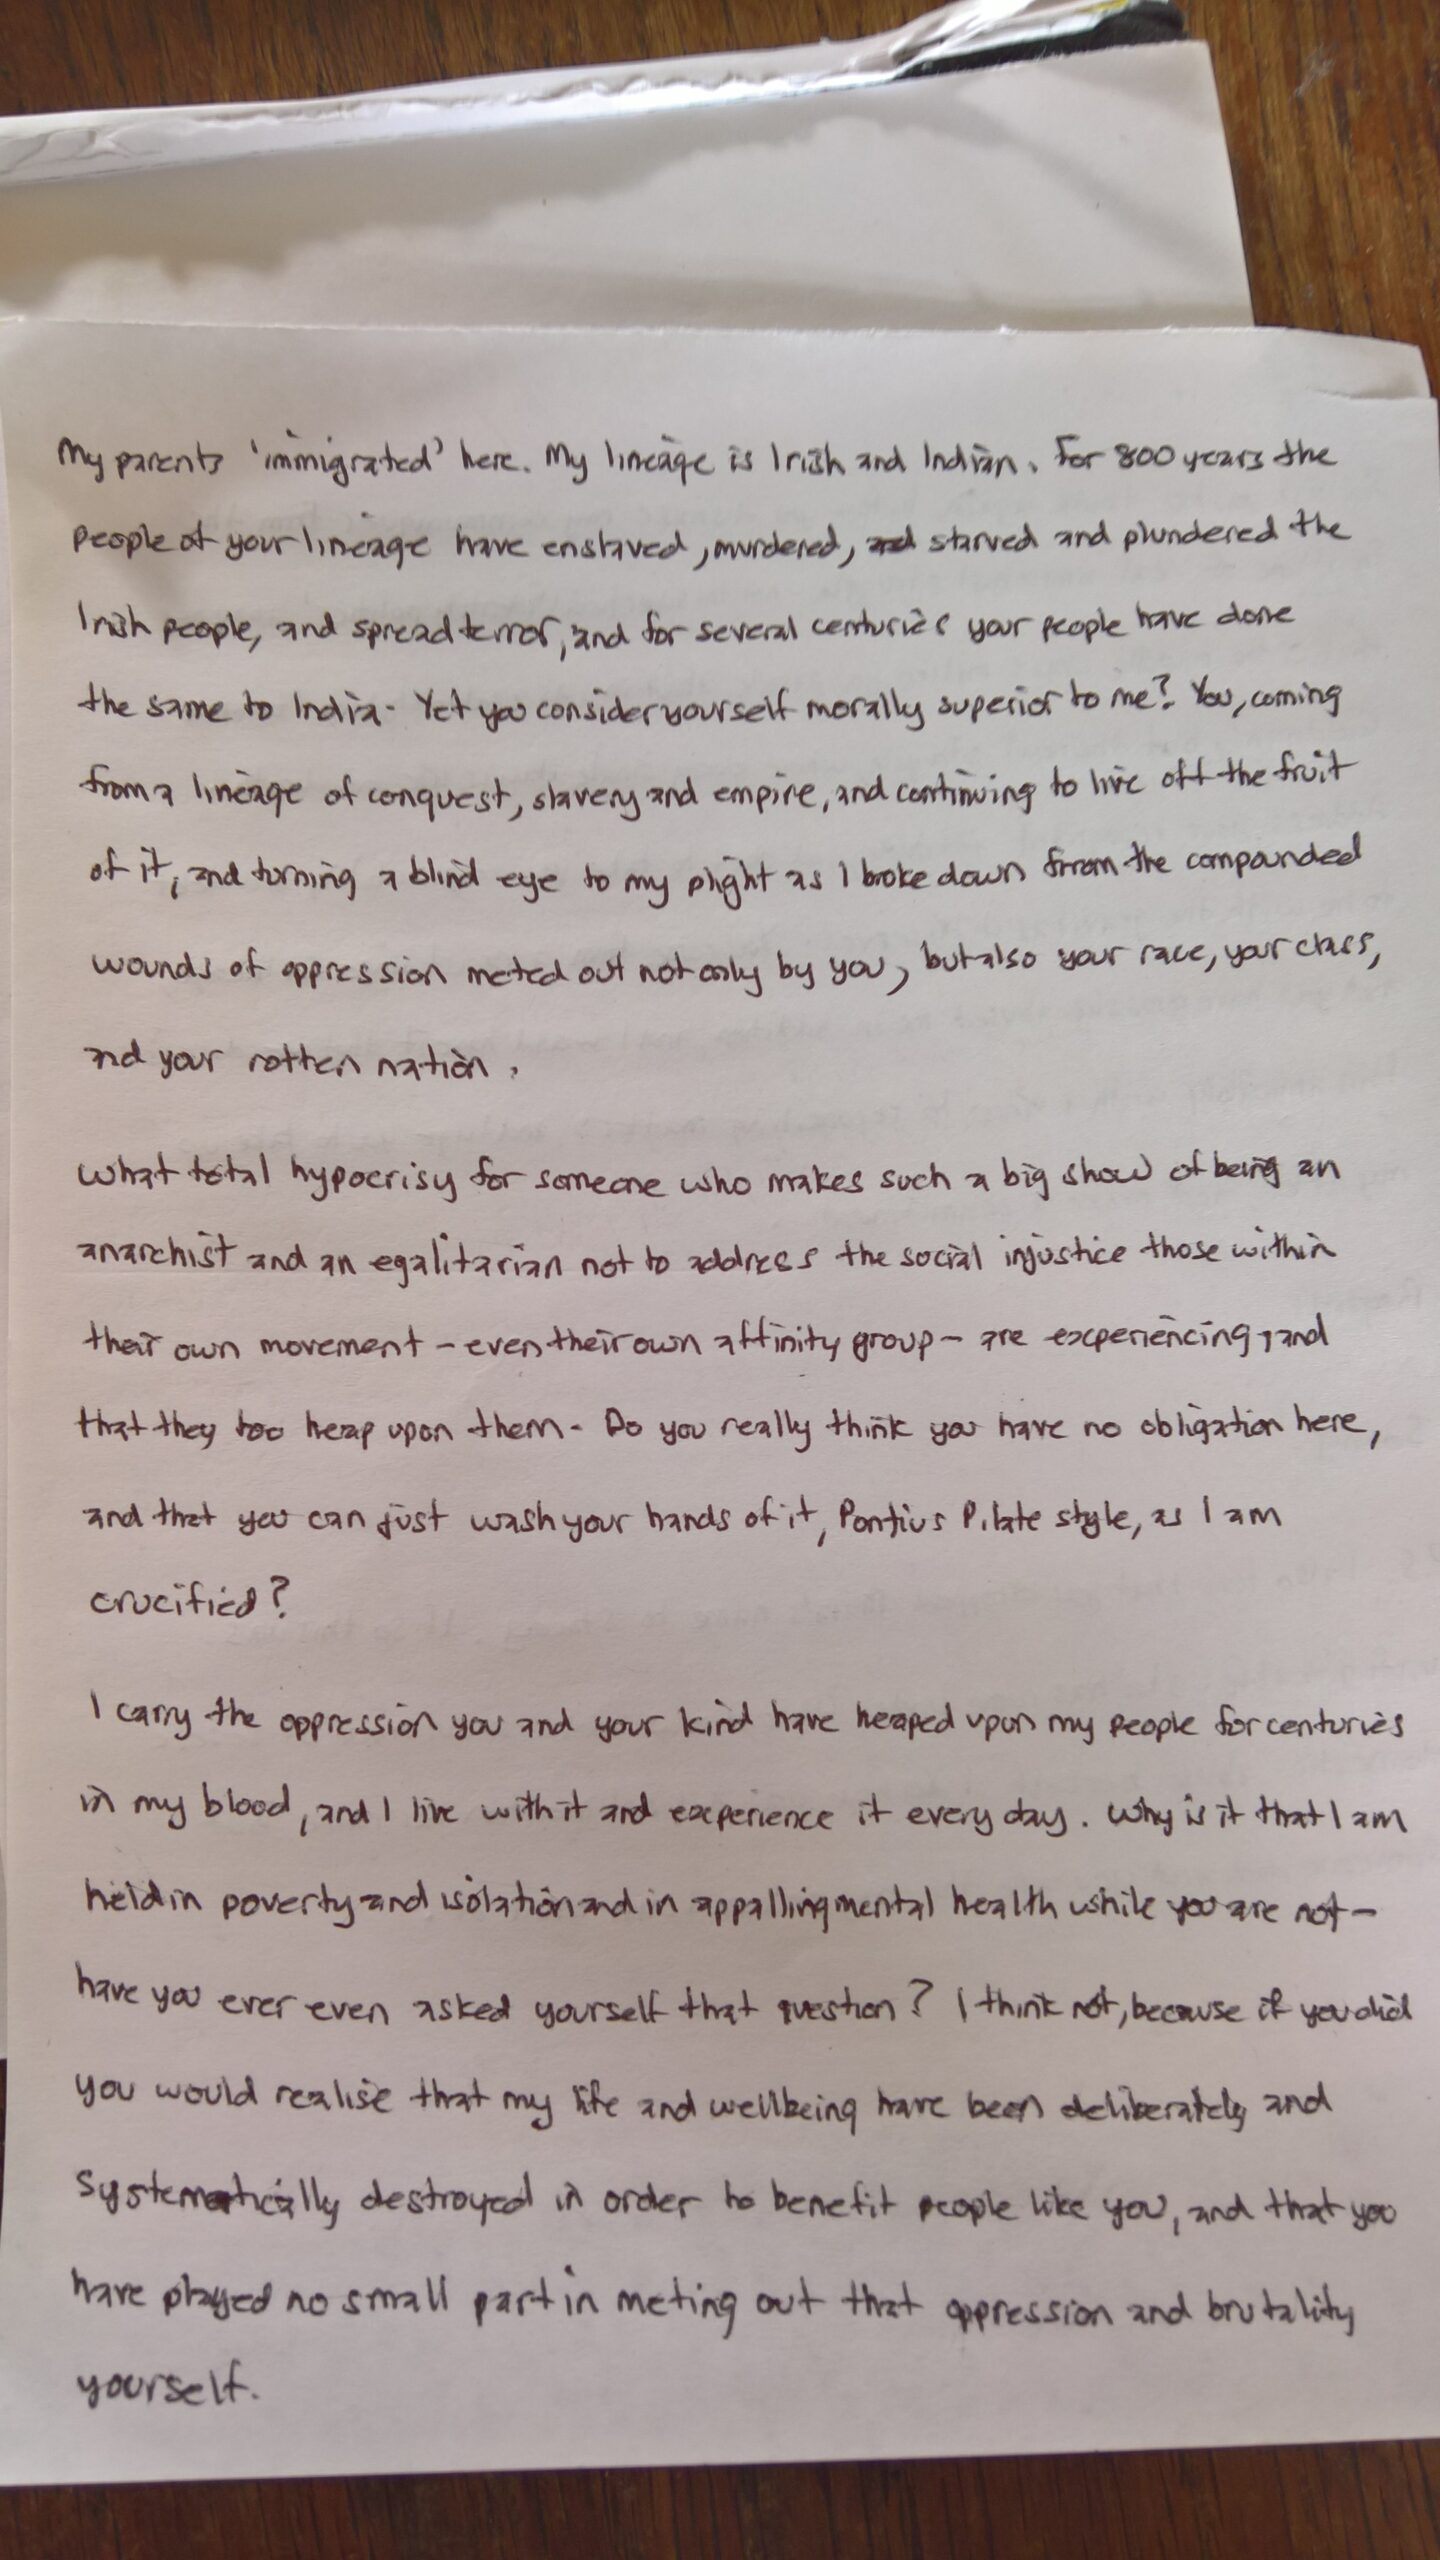 My parents 'immigrated' here. My lineage is Irish and Indian. For 800 years the
people of your lineage have enslaved, murdered, starved and plundered the
Irish people, and spread terror, and for several centuries your people have done
the same to India. Yet you consider yourself morally superior to me? You, coming
from a lineage of conquest, slavery and empire, and continuing to live off the fruit
of it, and turning a blind eye to my plight as I broke down from the compounded
wounds of oppression meted out not only by you, but also your race, your class,
and your rotten nation.
What total hypocrisy for someone who makes such a big show of being an
anarchist and an egalitarian not to address the social injustice those within
their own movement – even their own affinity group – are experiencing, and
that they too heap upon them. Do you really think you have no obligation here,
and that you can just wash your hands of it, Pontius Pilate style, as I am
crucified?
I carry the oppression you and your kind have heaped upon my people for centuries
in my blood, and I live with it and experience it every day. Why is it that I am
held in poverty and isolation and in appalling mental health while you are not –
have you ever even asked yourself that question? I think not, because if you did
you would realise that my life and wellbeing have been deliberately and
systematically destroyed in order to benefit people like you, and that you
have played no small part in meting out that oppression and brutality
yourself.